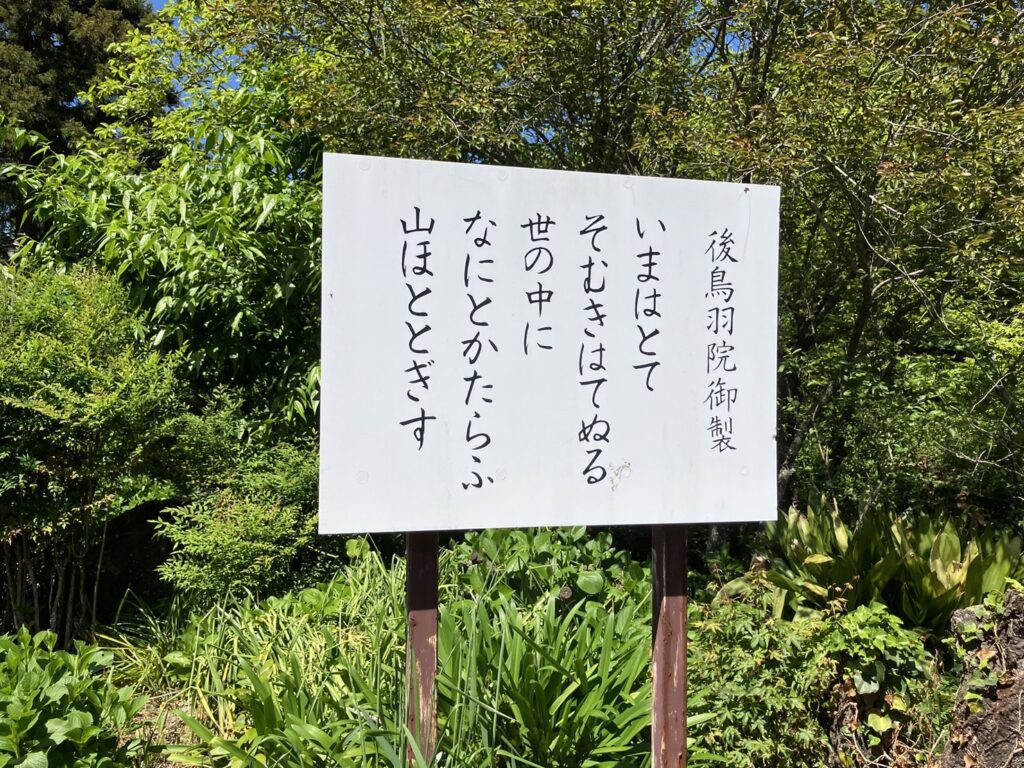 後鳥羽院御製
いまはとて
そむきはてぬる
世の中に
なにとかたらふ
山ほととぎす